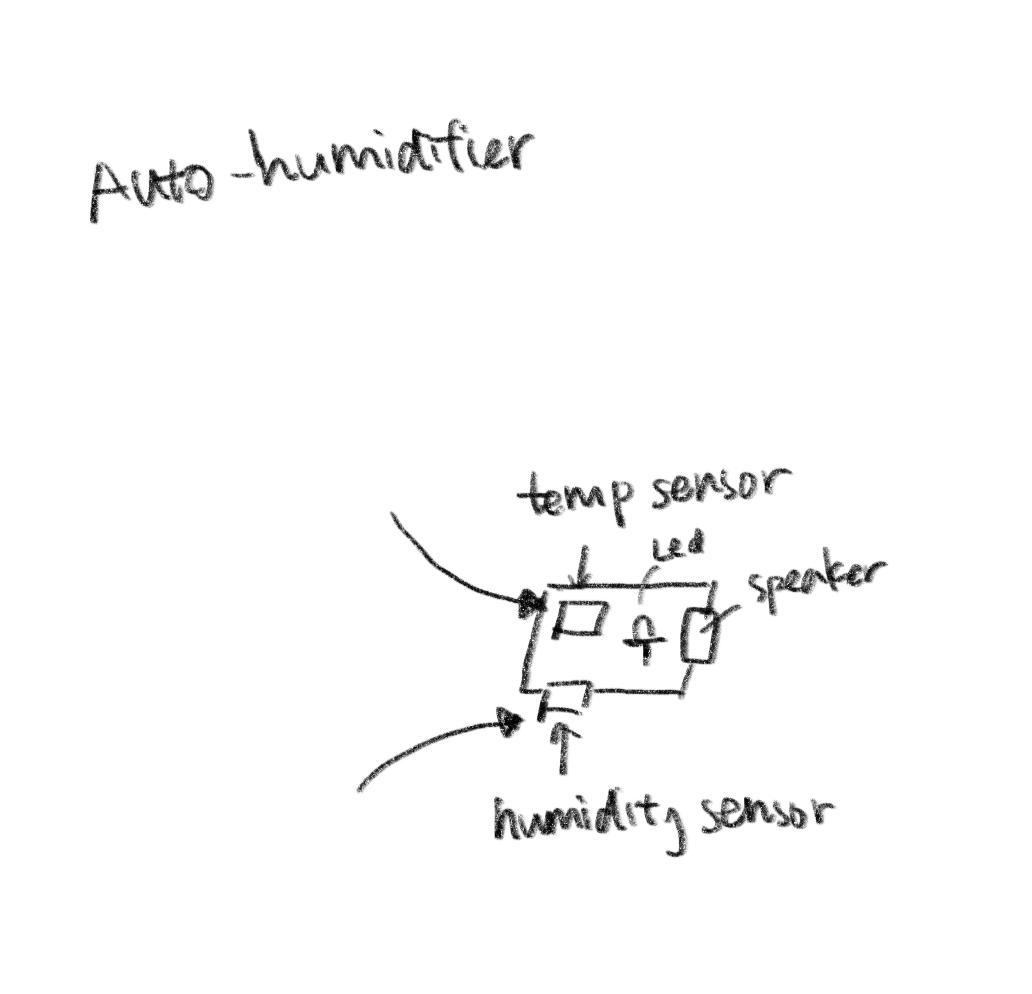 Auto-humidifier
temp sensor
Led
speaker
humidity sensor